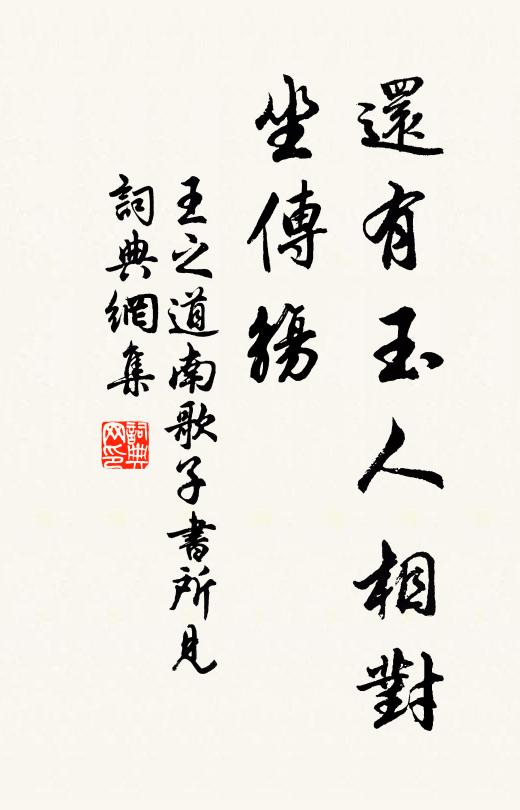 還有玉人相對
坐傳觴
王之道南歌子書所見
詞典網集
詞典
网印